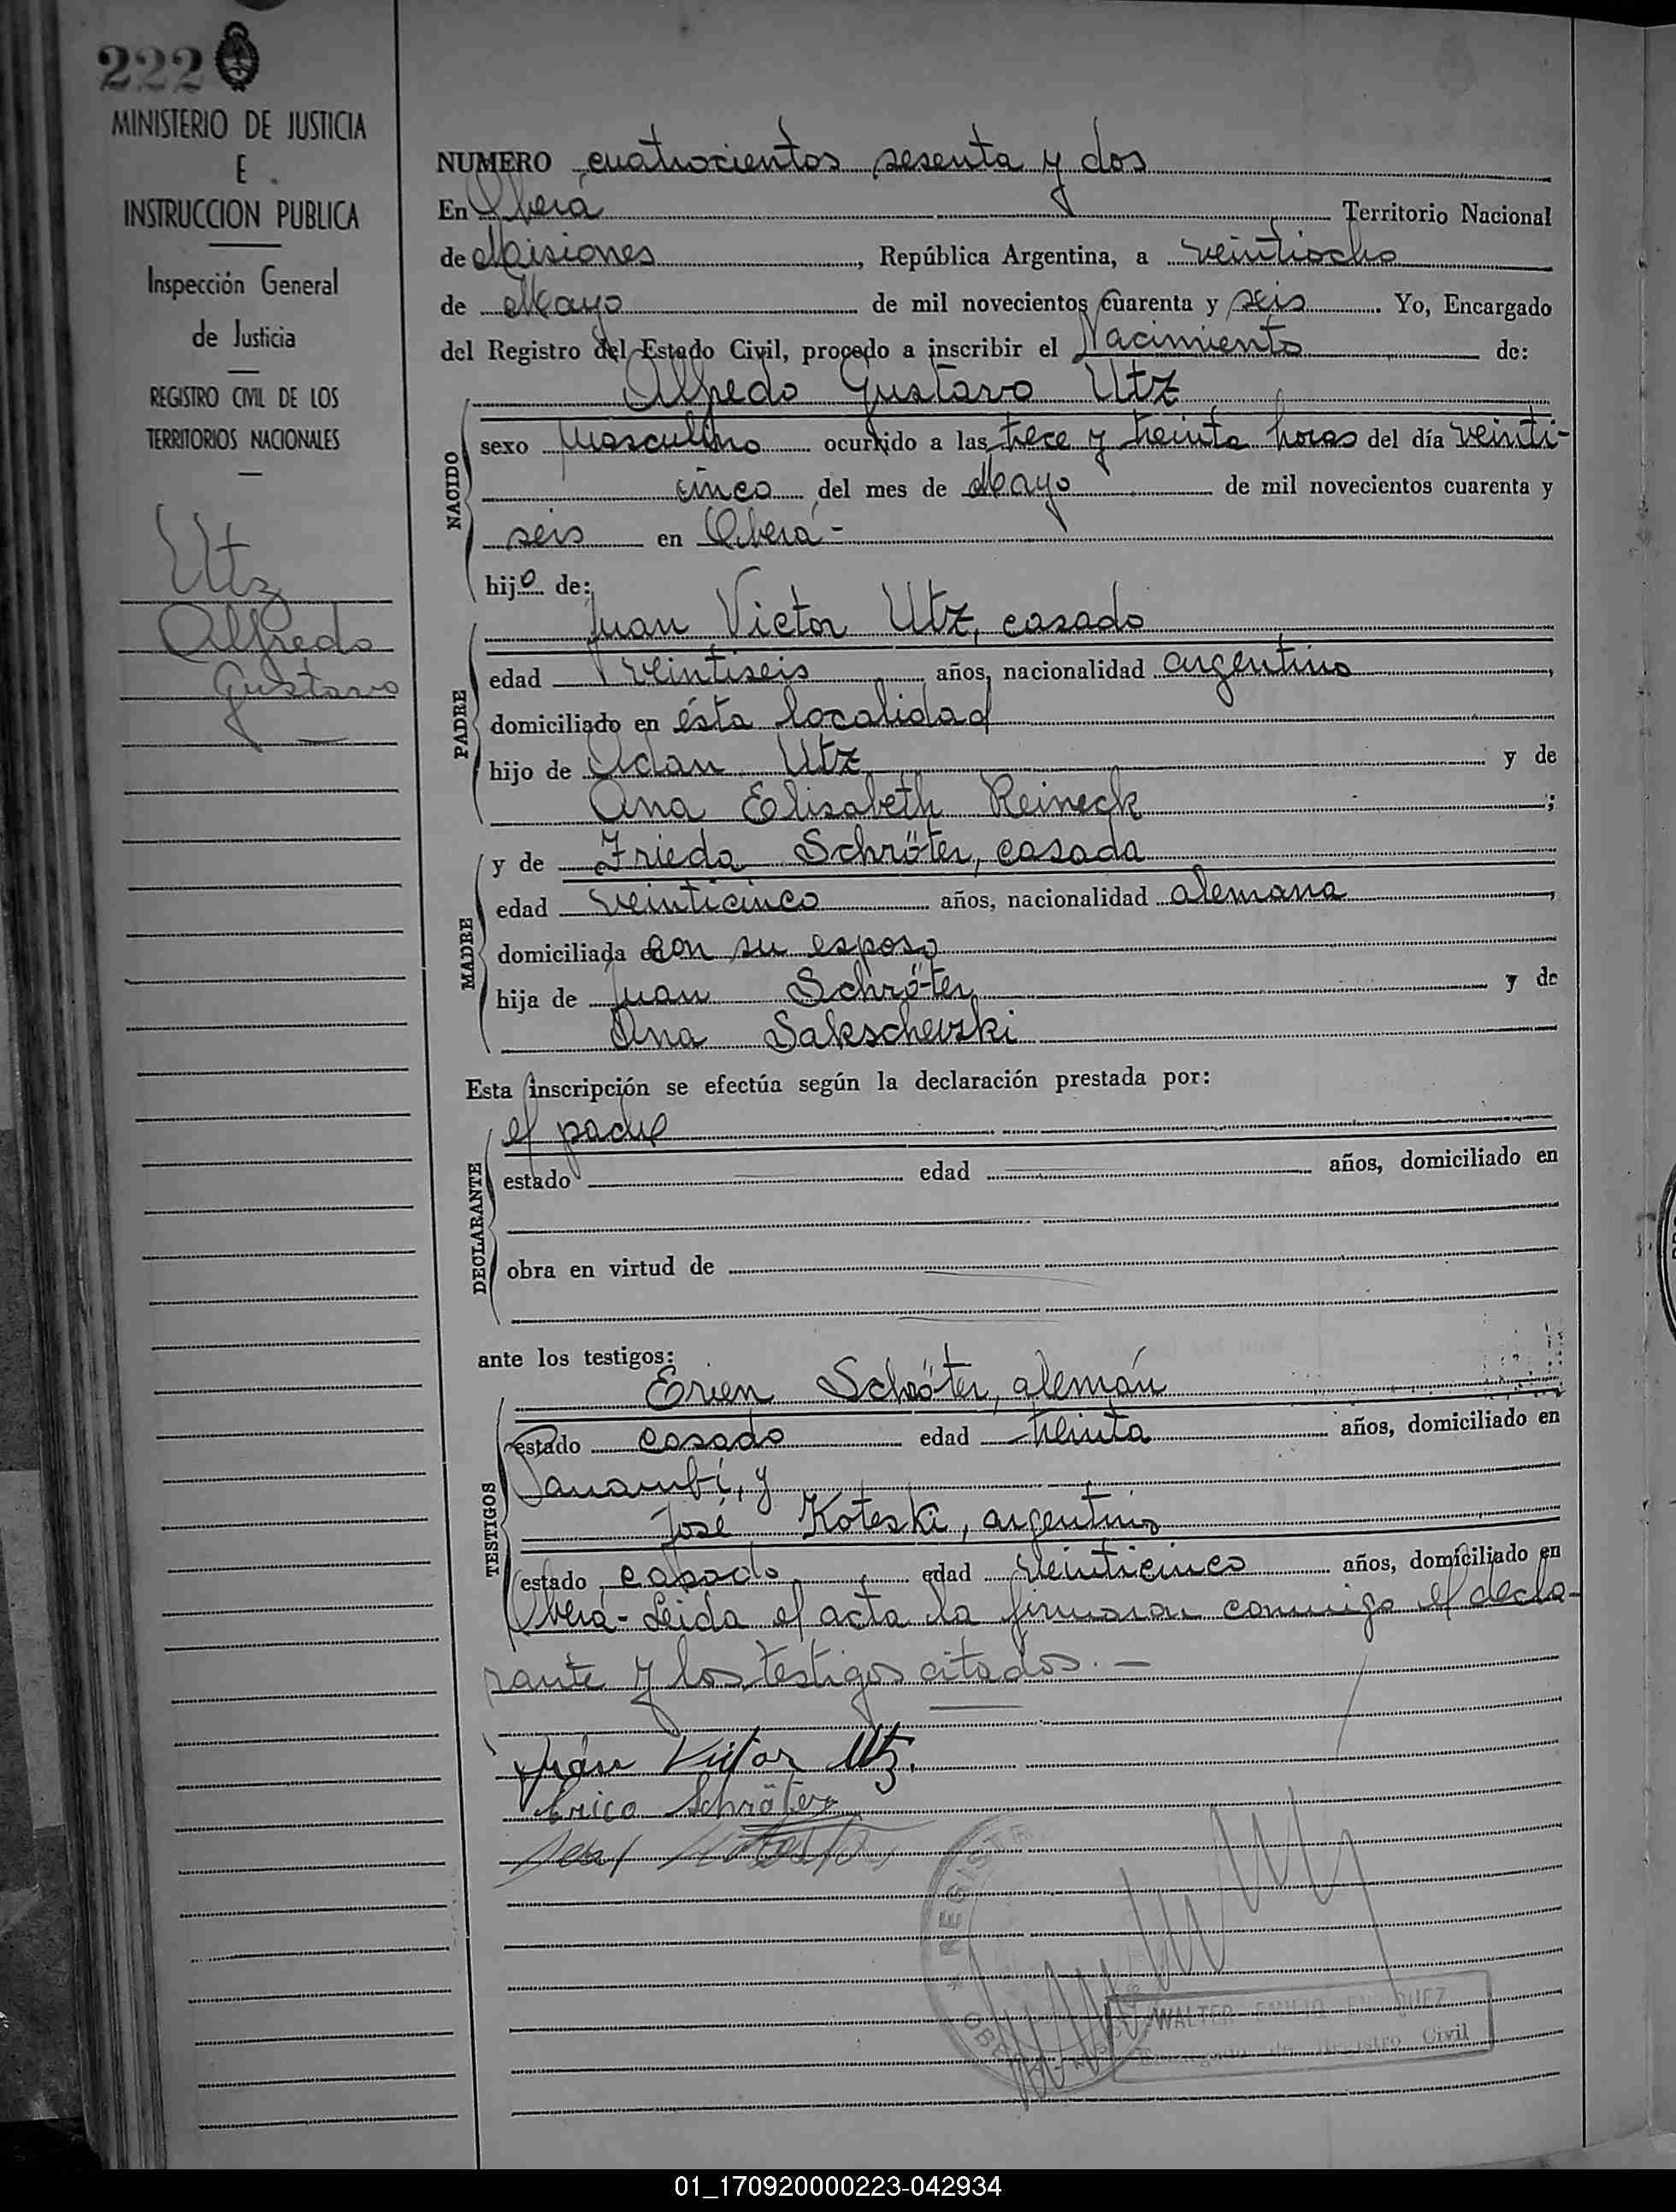 222
MINISTERIO DE JUSTICIA
E
INSTRUCCION PUBLICA
Inspección General
de Justicia
REGISTRO CIVIL DE LOS
TERRITORIOS NACIONALES
Utz
Alfredo
Gustavo
NUMERO cuatrocientos sesenta y dos
En Oberá Territorio Nacional
de Misiones, República Argentina, a veintiocho
de Mayo de mil novecientos cuarenta y seis. Yo, Encargado
del Registro del Estado Civil, procedo a inscribir el Nacimiento de:
Alfredo Gustavo Utz
NACIDO
sexo Masculino ocurrido a las trece y treinta horas del día veinti-
cinco del mes de Mayo de mil novecientos cuarenta y
seis en Oberá-
hijo de:
Juan Victor Utz, casado
PADRE
edad veintiseis años, nacionalidad argentino,
domiciliado en ésta localidad
hijo de Adan Utz y de
Ana Elisabeth Reineck;
MADRE
y de Frieda Schröter, casada
edad veinticinco años, nacionalidad alemana,
domiciliada con su esposo
hija de Juan Schröter y de
Ana Sakschevski
Esta inscripción se efectúa según la declaración prestada por:
DECLARANTE
el padre
estado edad años, domiciliado en
obra en virtud de
ante los testigos:
TESTIGOS
Schröter, alemán
estado casado edad treinta años, domiciliado en
Panambí, y
José Koteski, argentino
estado casado edad veinticinco años, domiciliado en
Oberá- Leida el acta la firmaron conmigo el decla-
rante y los testigos citados.-
Juan Victor Utz.
Erico Schröter
REGISTR
WALTER EMILIO ENRIQUEZ
Encargado de Registro Civil
01_170920000223-042934